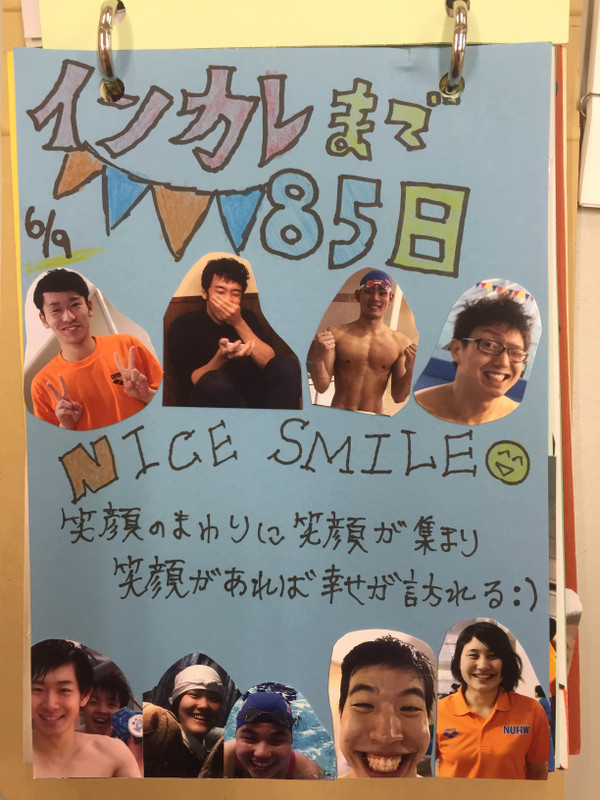 インカレまで
85日
6/9
NICE SMILE
笑顔のまわりに笑顔が集まり
笑顔があれば幸せが訪れる:)
NUHW